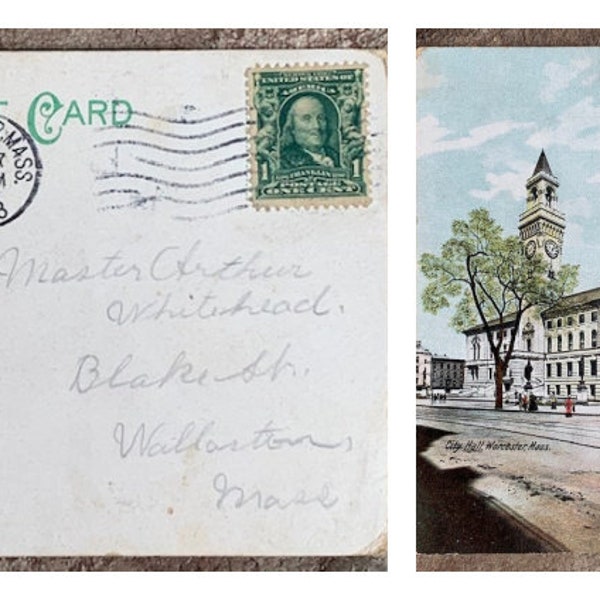 T CARD
MASS.
UNITED STATES OF
AMERICA
1 FRANKLIN 1
POSTAGE
ONE CENT
Master Arthur
Whitehead.
Blake St.
Wollaston,
Mass
City Hall, Worcester, Mass.